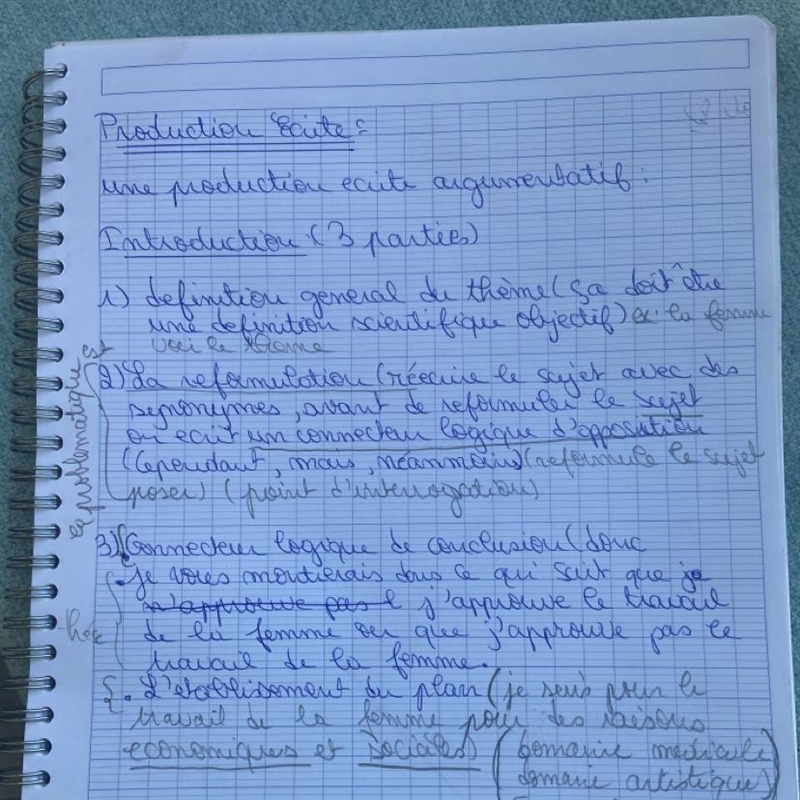 Production Ecrite :
une production ecrite argumentatif :
Introduction (3 parties)
1) definition general du thème (ça doit être
une definition scientifique objectif) la femme
voici le theme
est
2) La reformulation (réecrire le sujet avec des
synonymes, avant de reformuler le sujet
on ecrit un connecteur logique d'opposition
(Cependant, mais, néammoins) (reformule le sujet
poser) (point d'interrogation)
problematique
3) Connecteur logique de conclusion (donc
je vous montrerais dans ce qui suit que je
n'approuve pas l j'approuve le travail
de la femme ou que j'approuve pas le
travail de la femme.
. L'etablissement du plan (je suis pour le
travail de la femme pour des raisons
economiques et sociales) (domaine medicale
domaine artistique)